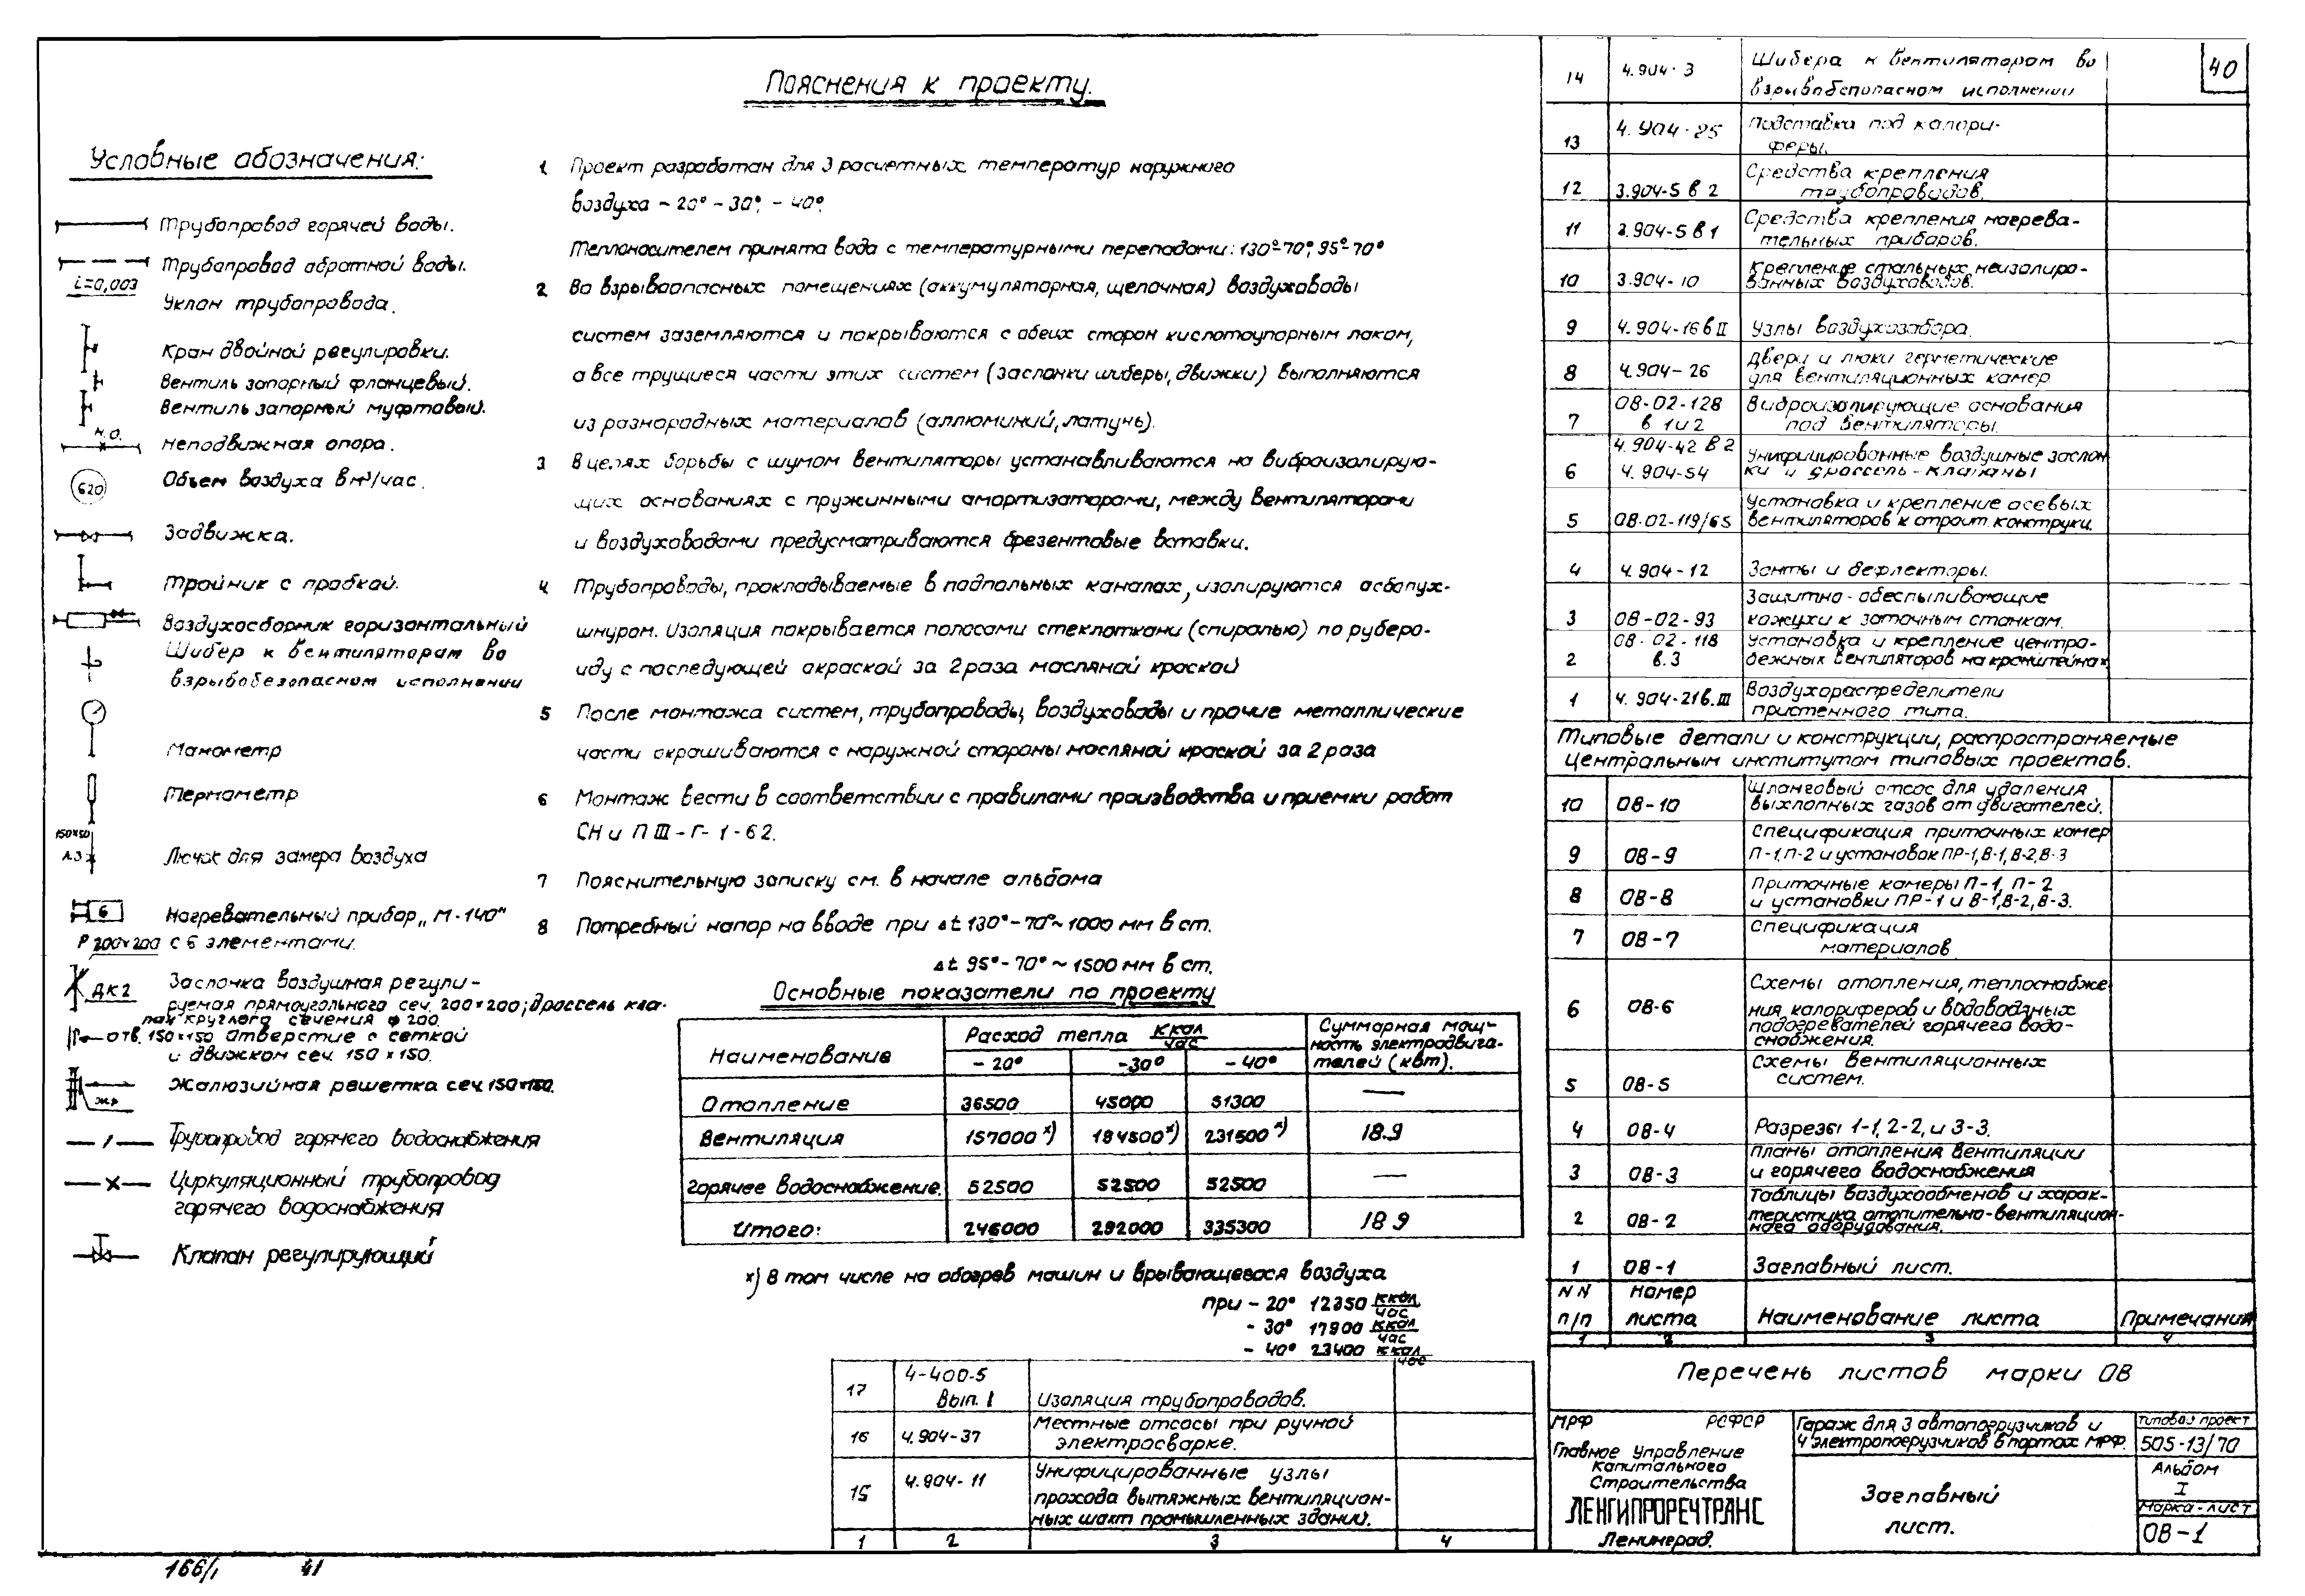 Пояснения к проекту.
Условные обозначения:
Трубопровод горячей воды.
Трубопровод обратной воды.
i=0,003
Уклон трубопровода.
Кран двойной регулировки.
Вентиль запорный фланцевый.
Вентиль запорный муфтовый.
Н.О.
Неподвижная опора.
620
Объем воздуха в м³/час.
Задвижка.
Тройник с пробкой.
Воздухосборник горизонтальный
Шибер к вентиляторам во
взрывобезопасном исполнении
Манометр
Термометр
150×50
Л.З
Лючок для замера воздуха
6
Нагревательный прибор „М-140"
с 6 элементами.
Р 200×200
ДК2
Заслонка воздушная регули-
руемая прямоугольного сеч. 200×200; дроссель кла-
пан круглого сечения ф 200.
отв. 150×150 Отверстие с сеткой
и движком сеч. 150×150.
ЖР
Жалюзийная решетка сеч. 150×150.
Трубопровод горячего водоснабжения
Циркуляционный трубопровод
горячего водоснабжения
Клапан регулирующий
1 Проект разработан для 3 расчетных температур наружного
воздуха -20° -30°, -40°.
Теплоносителем принята вода с температурными перепадами: 130°-70°, 95°-70°
2 Во взрывоопасных помещениях (аккумуляторная, щелочная) воздуховоды
систем заземляются и покрываются с обеих сторон кислотоупорным лаком,
а все трущиеся части этих систем (заслонки шиберы, движки) выполняются
из разнородных материалов (аллюминий, латунь).
3 В целях борьбы с шумом вентиляторы устанавливаются на виброизолирую-
щих основаниях с пружинными амортизаторами, между вентиляторами
и воздуховодами предусматриваются брезентовые вставки.
4 Трубопроводы, прокладываемые в подпольных каналах, изолируются асбопух-
шнуром. Изоляция покрывается полосами стеклоткани (спиралью) по руберо-
иду с последующей окраской за 2 раза масляной краской
5 После монтажа систем, трубопроводы, воздуховоды и прочие металлические
части окрашиваются с наружной стороны масляной краской за 2 раза
6 Монтаж вести в соответствии с правилами производства и приемки работ
СН и П III-Г-1-62.
7 Пояснительную записку см. в начале альбома
8 Потребный напор на вводе при Δt 130°-70°~1000 мм в ст.
Δt 95°-70°~1500 мм в ст.
Основные показатели по проекту
Наименование
Расход тепла ккал/час
Суммарная мощ-
ность электродвига-
телей (квт).
-20° -30° -40°
Отопление 36500 45000 51300 —
Вентиляция 157000 х) 184500 х) 231500 х) 18.9
горячее водоснабжение. 52500 52500 52500 —
Итого: 246000 282000 335300 18 9
х) В том числе на обогрев машин и врывающегося воздуха
при -20° 12350 ккал/час
-30° 17900 ккал/час
-40° 23400 ккал/час
17 4-400-5 Вып. 1 Изоляция трубопроводов.
16 4.904-37 Местные отсосы при ручной
электросварке.
15 4.904-11 Унифицированные узлы
прохода вытяжных вентиляцион-
ных шахт промышленных зданий.
1 2 3 4
40
14 4.904-3 Шибера к вентиляторам во
взрывобепопасном исполнении
13 4.904-25 Подставка под калори-
феры.
12 3.904-5 в 2 Средства крепления
трубопроводов.
11 3.904-5 в 1 Средства крепления нагрева-
тельных приборов.
10 3.904-10 Крепление стальных неизолиро-
ванных воздуховодов.
9 4.904-16 в II Узлы воздухозабора.
8 4.904-26 Двери и люки герметические
для вентиляционных камер
7 ОВ-02-128
в 1 и 2 Виброизолирующие основания
под вентиляторы.
6 4.904-42 в 2
4.904-54 Унифицированные воздушные заслон
ки и дроссель-клапаны
5 ОВ-02-119/65 Установка и крепление осевых
вентиляторов к строит. конструкц.
4 4.904-12 Зонты и дефлекторы.
3 ОВ-02-93 Защитно-обеспыливающие
кожухи к заточным станкам.
2 ОВ-02-118
в.3 Установка и крепление центро-
бежных вентиляторов на кронштейнах
1 4.904-21 в. III Воздухораспределители
пристенного типа.
Типовые детали и конструкции, распространяемые
Центральным институтом типовых проектов.
10 ОВ-10 Шланговый отсос для удаления
выхлопных газов от двигателей.
9 ОВ-9 Спецификация приточных камер
П-1, П-2 и установок ПР-1, В-1, В-2, В-3
8 ОВ-8 Приточные камеры П-1, П-2
и установки ПР-1 и В-1, В-2, В-3.
7 ОВ-7 Спецификация
материалов
6 ОВ-6 Схемы отопления, теплоснабже
ния калориферов и водоводяных
подогревателей горячего водо-
снабжения.
5 ОВ-5 Схемы вентиляционных
систем.
4 ОВ-4 Разрезы 1-1, 2-2, и 3-3.
3 ОВ-3 Планы отопления вентиляции
и горячего водоснабжения
2 ОВ-2 Таблицы воздухообменов и харак-
теристика отопительно-вентиляцион-
ного оборудования.
1 ОВ-1 Заглавный лист.
NN
п/п Номер
листа Наименование листа Примечания
1 2 3 4
Перечень листов марки ОВ
МРФ РСФСР
Главное Управление
Капитального
Строительства
ЛЕНГИПРОРЕЧТРАНС
Ленинград.
Гараж для 3 автопогрузчиков и
4 электропогрузчиков в портах МРФ.
Заглавный
лист.
Типовой проект
505-13/70
Альбом
I
Марка-лист
ОВ-1
166/1 41